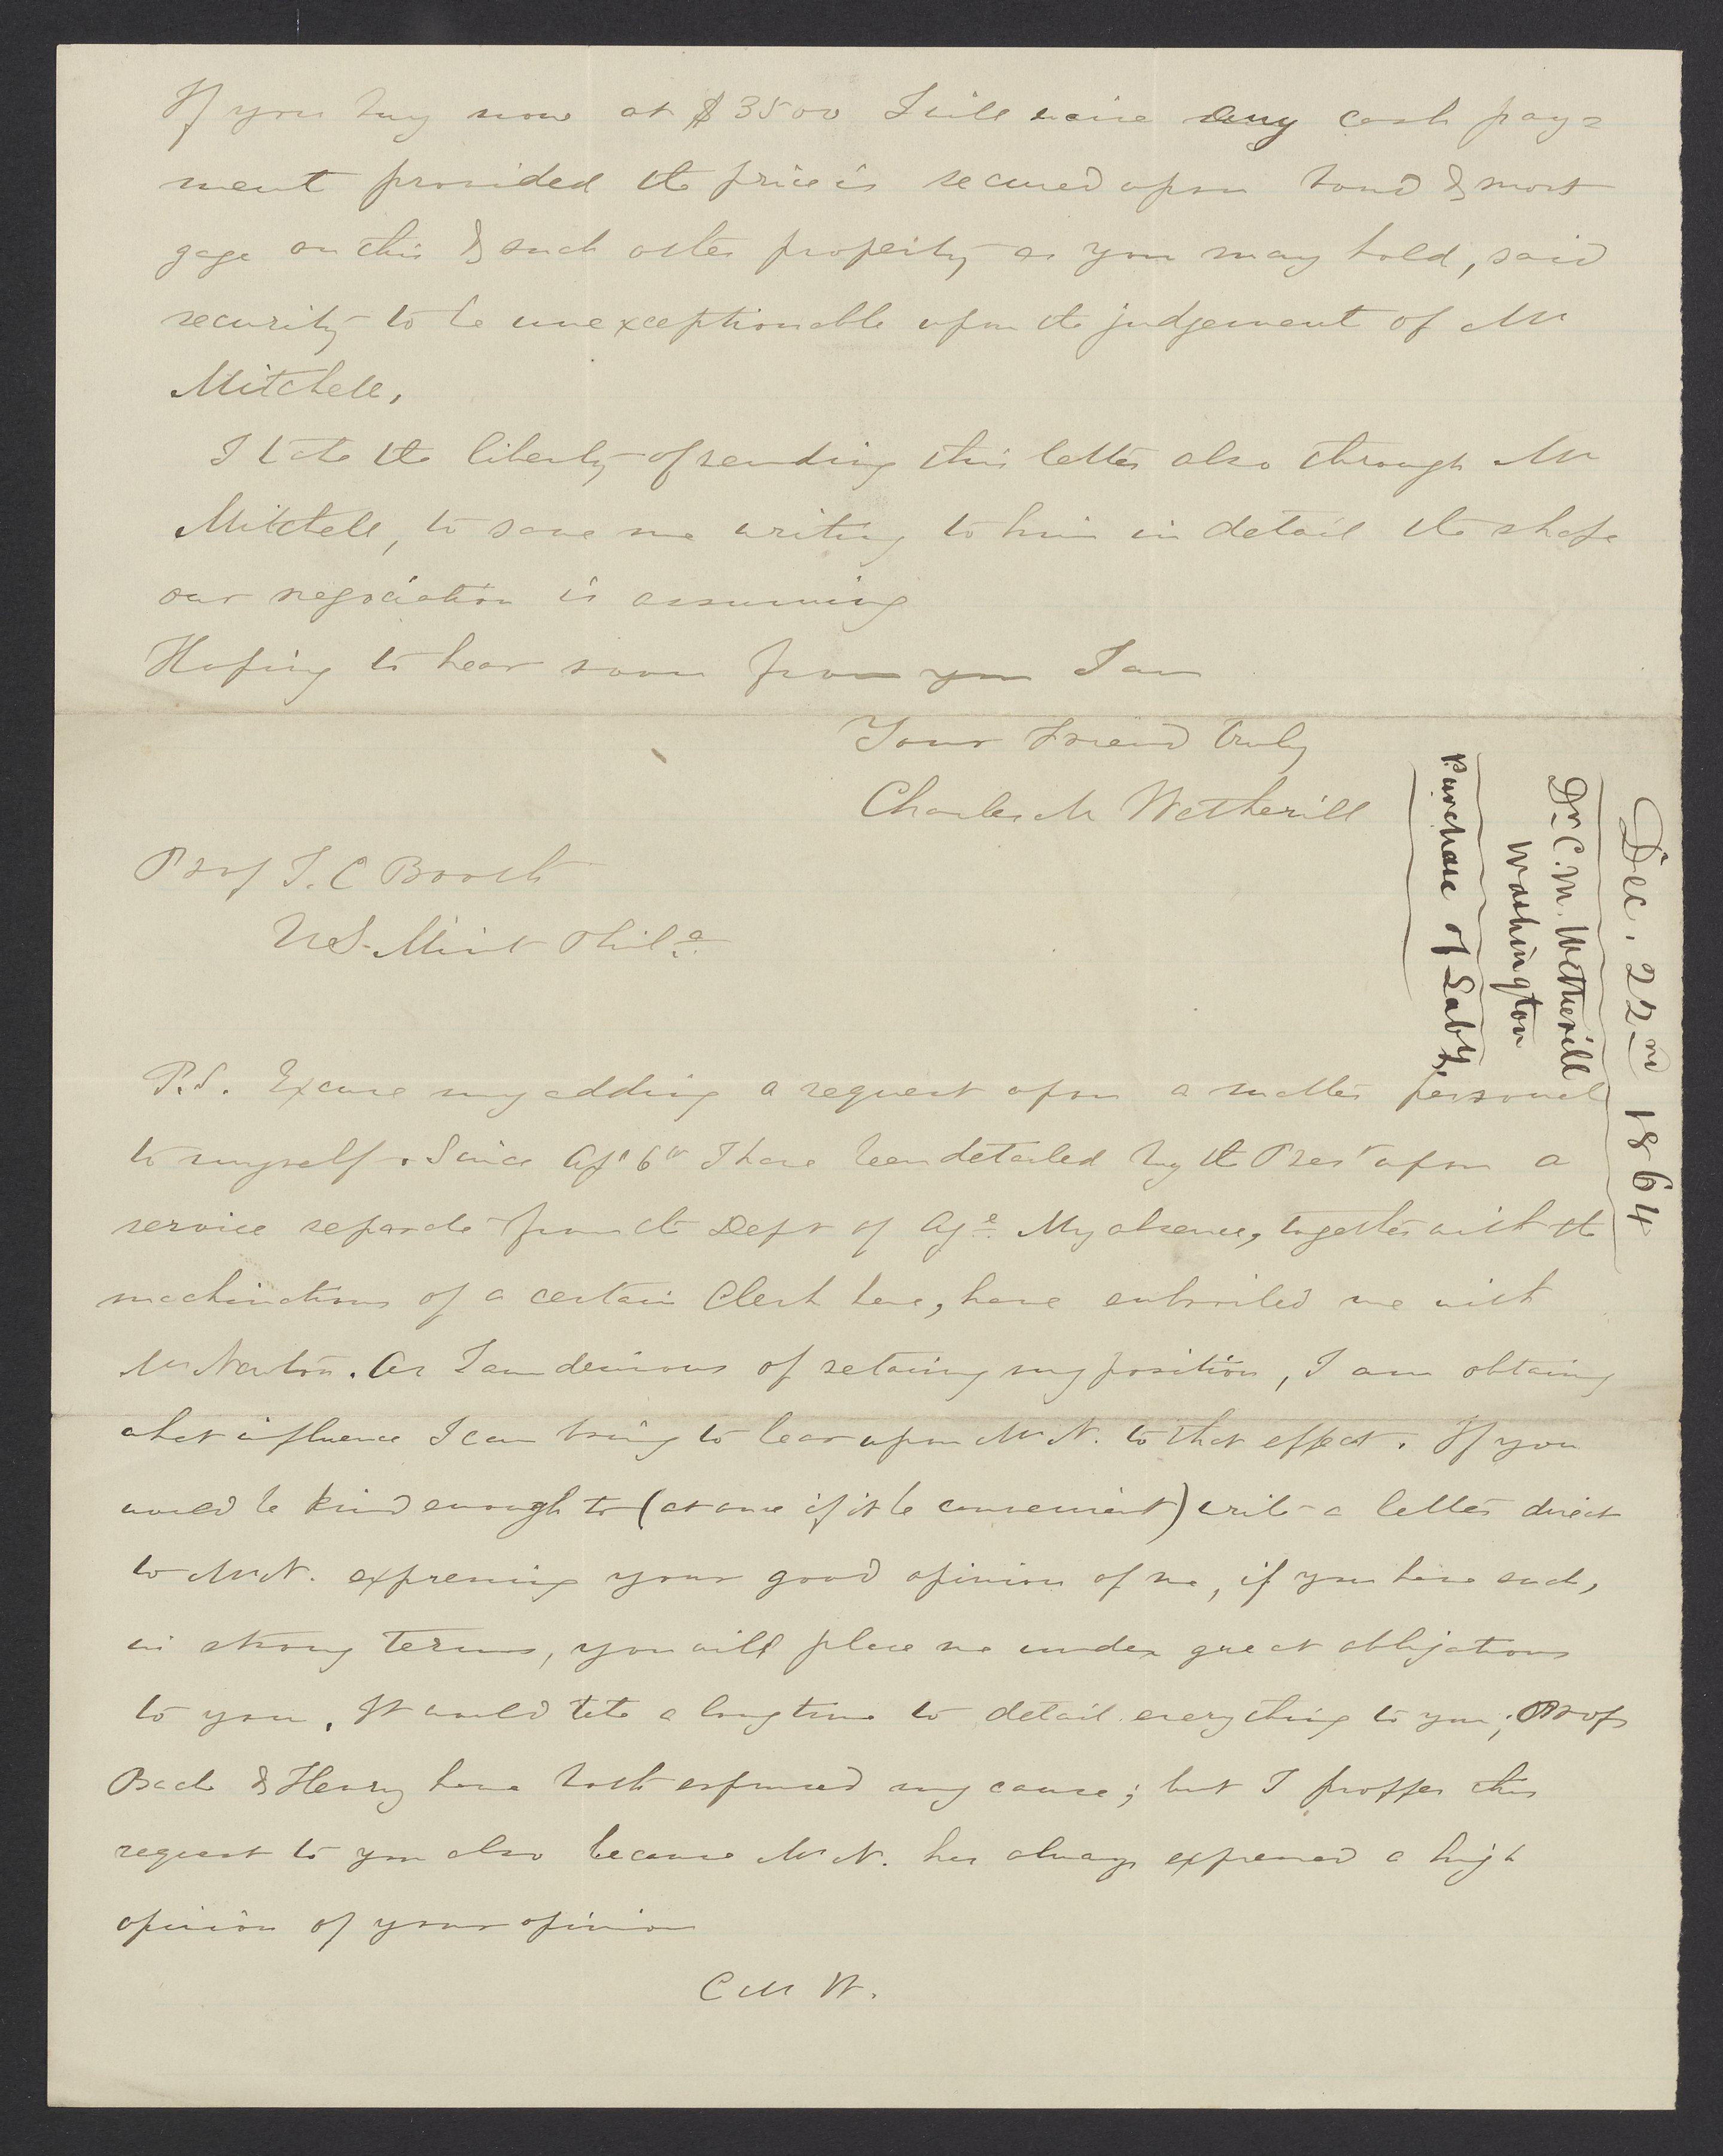 If you buy now at $3500 I will waive any cash pay=
ment provided the price is secured upon bond & mort
gage on this & such other property as you may hold, said
security to be unexceptionable upon the judgement of Mr
Mitchell,
I take the liberty of sending this letter also through Mr
Mitchell, to save me writing to him in detail the shape
our negociation is assuming
Hoping to hear soon from you I am
Your Friend truly
Charles M Wetherill
Prof J. C Booth
US. Mint Phila.
P.S. Excuse my adding a request upon a matter personal
to myself. Since Apl 6th I have been detailed by the Prest upon a
service separate from the Dept of Age. My absence, together with the
machinations of a certain Clerk here, have embroiled me with
Mr Newton. As I am desirous of retaing my position, I am obtaing
what influence I can bring to bear upon Mr N. to that effect. If you
would be kind enough to (at once if it be convenient) write a letter direct
to Mr N. expressing your good opinion of me, if you have such,
in strong terms, you will place me under great obligations
to you. It would take a long time to detail everything to you; Profs
Bache & Henry have both espoused my cause; but I proffer this
request to you also because Mr N. has always expressed a high
opinion of your opinion
C M W.
Dec. 22nd 1864
Dr. C. M. Wetherill
Washington
Purchase of Laby.